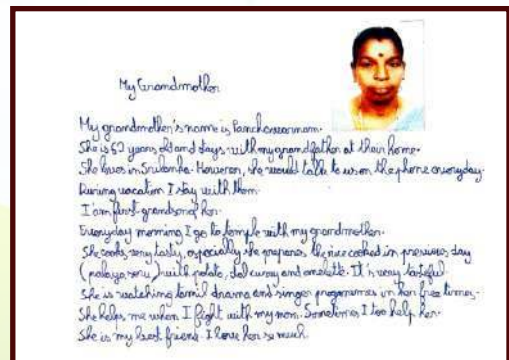 My Grandmother
My grandmother's name is Panchavarnam.
She is 62 years old and stays with my grandfather at their home.
She lives in Srilanka. However, she would talk to us on the phone everyday.
During vacation I stay with them.
I am first grandson of her.
Everyday morning I go to temple with my grandmother.
She cooks very tasty, especially she prepares the rice cooked in previous day
(palaya soru) with potato, dal curry and omelete. It is very tasteful.
She is watching tamil drama and singer programmes in her free times.
She helps me when I fight with my mom. Sometimes I too help her.
She is my best friend. I love her so much.